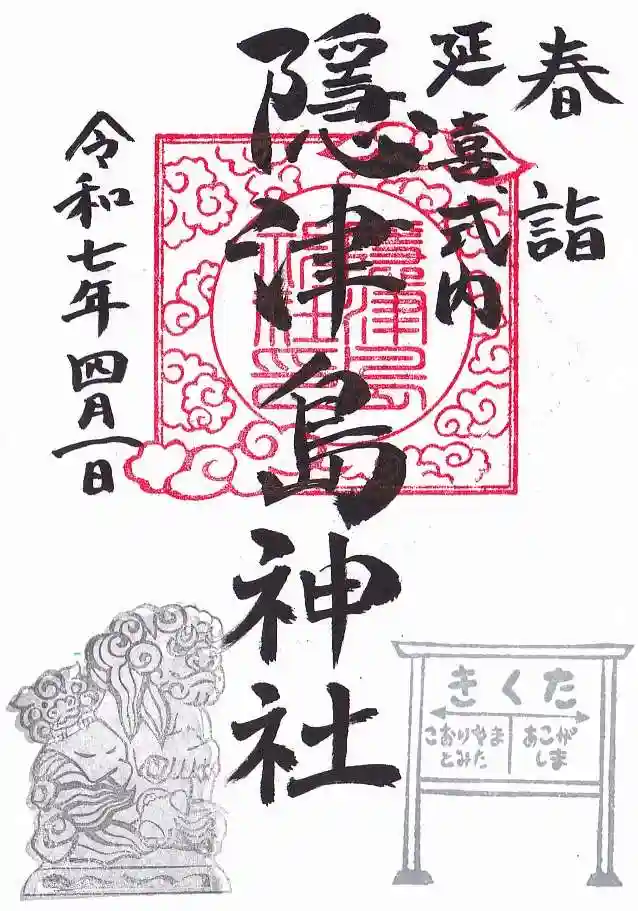 春詣
延喜式内
隱津島神社
令和七年四月一日
きくた
こおりやま
とみた
あこが
しま